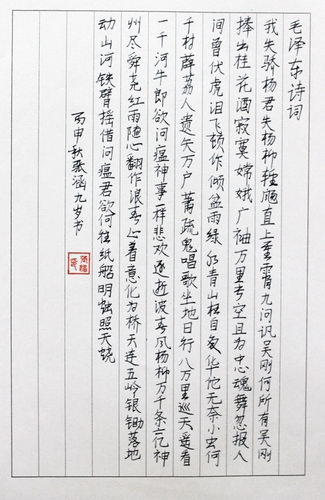 毛泽东诗词
我失骄杨君失杨柳轻飏直上重霄九问讯吴刚何所有吴刚
捧出桂花酒寂寞嫦娥广袖万里长空且为忠魂舞忽报人
间曾伏虎泪飞顿作倾盆雨绿水青山枉自多华佗无奈小虫何
千村薜荔人遗矢万户萧疏鬼唱歌坐地日行八万里巡天遥看
一千河牛郎欲问瘟神事一样悲欢逐逝波春风杨柳万千条六亿神
州尽舜尧红雨随心翻作浪青山着意化为桥天连五岭银锄落地
动山河铁臂摇借问瘟君欲何往纸船明烛照天烧
丙申秋张涵九岁书